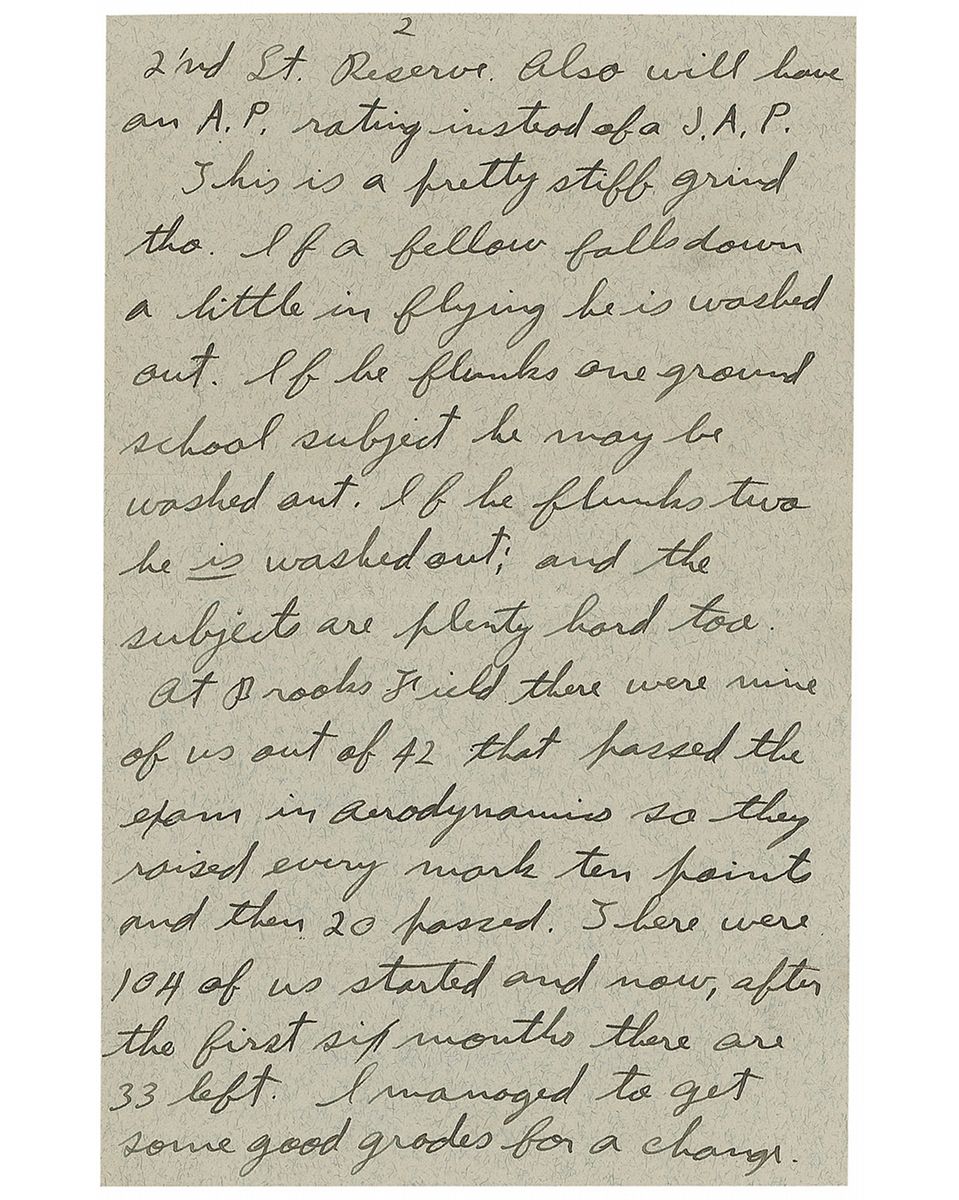 2
2'nd Lt. Reserve. Also will have
an A.P. rating instead of a J.A.P.
This is a pretty stiff grind
tho. If a fellow falls down
a little in flying he is washed
out. If he flunks one ground
school subject he may be
washed out. If he flunks two
he is washed out; and the
subjects are plenty hard too.
At Brooks Field there were nine
of us out of 42 that passed the
exam in aerodynamics so they
raised every mark ten points
and then 20 passed. There were
104 of us started and now, after
the first six months there are
33 left. I managed to get
some good grades for a change.